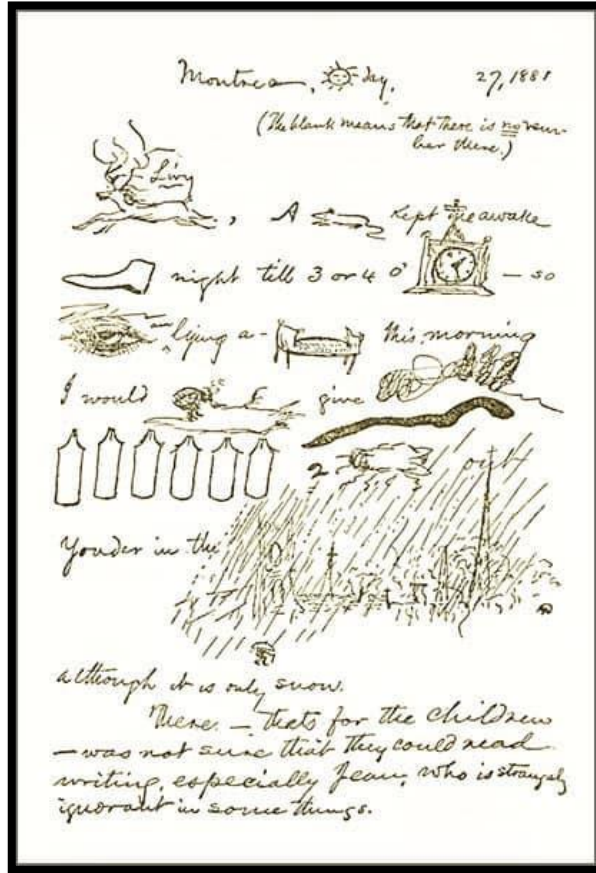 Montreal, day, 27, 1881
(The blank means that there is no vem-
ber there.)
Livy
, A kept me awake
night till 3 or 4 o' — so
am lying a- this morning
I would give
2 out
Yonder in the
although it is only snow.
There — thats for the children
— was not sure that they could read
writing, especially Jean, who is strangely
ignorant in some things.